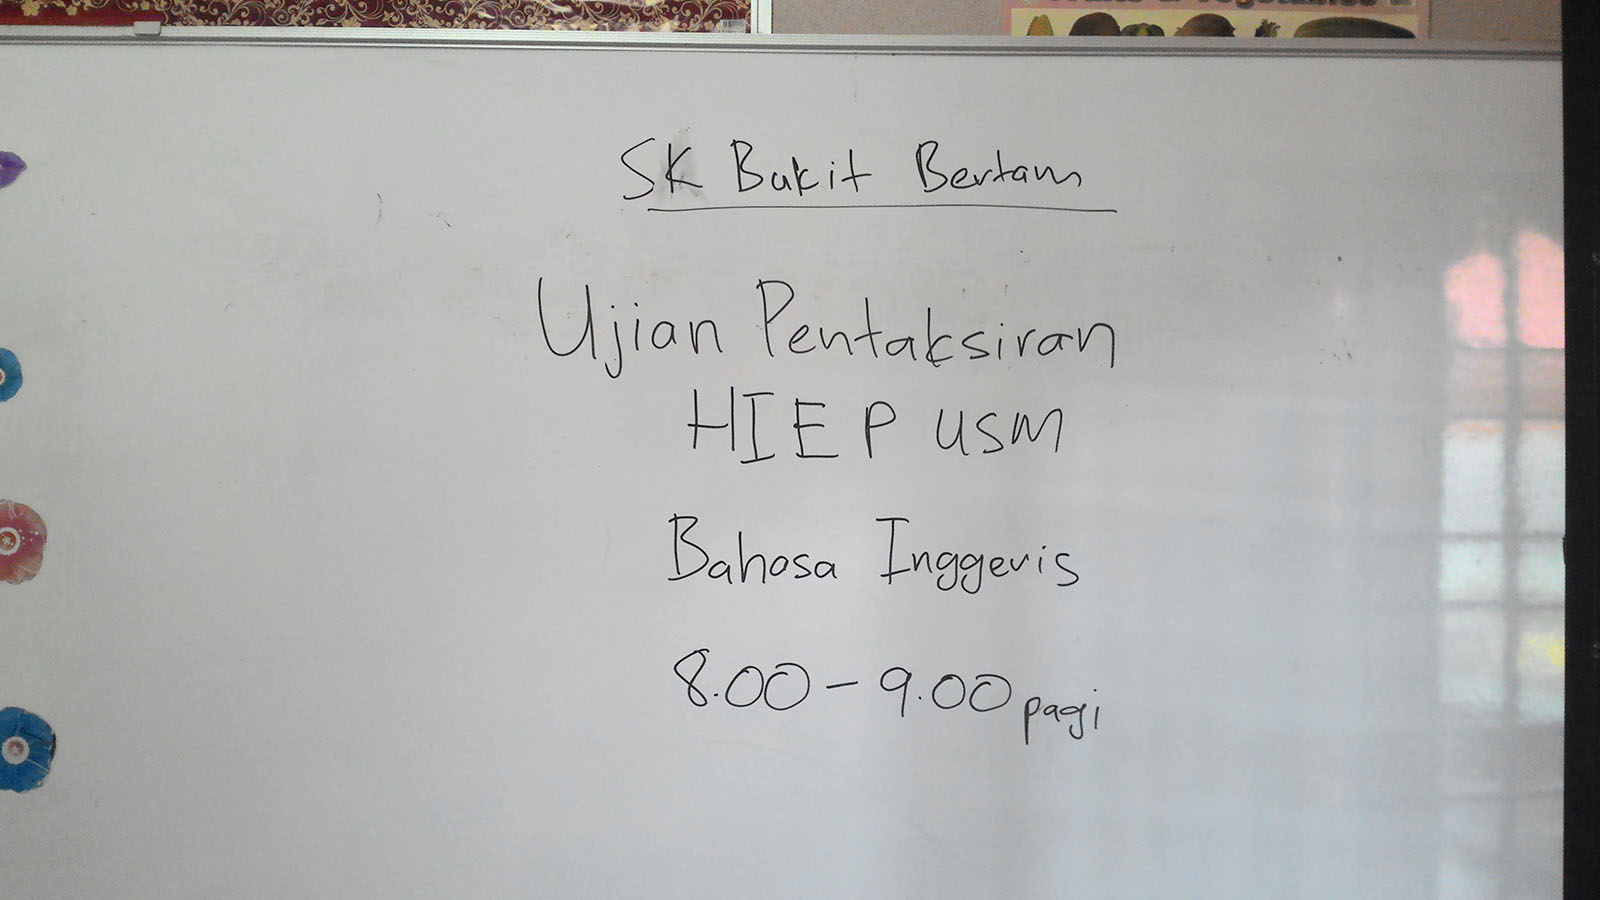 SK Bukit Bertam
Ujian Pentaksiran
HIEP USM
Bahasa Inggeris
8.00 - 9.00 pagi